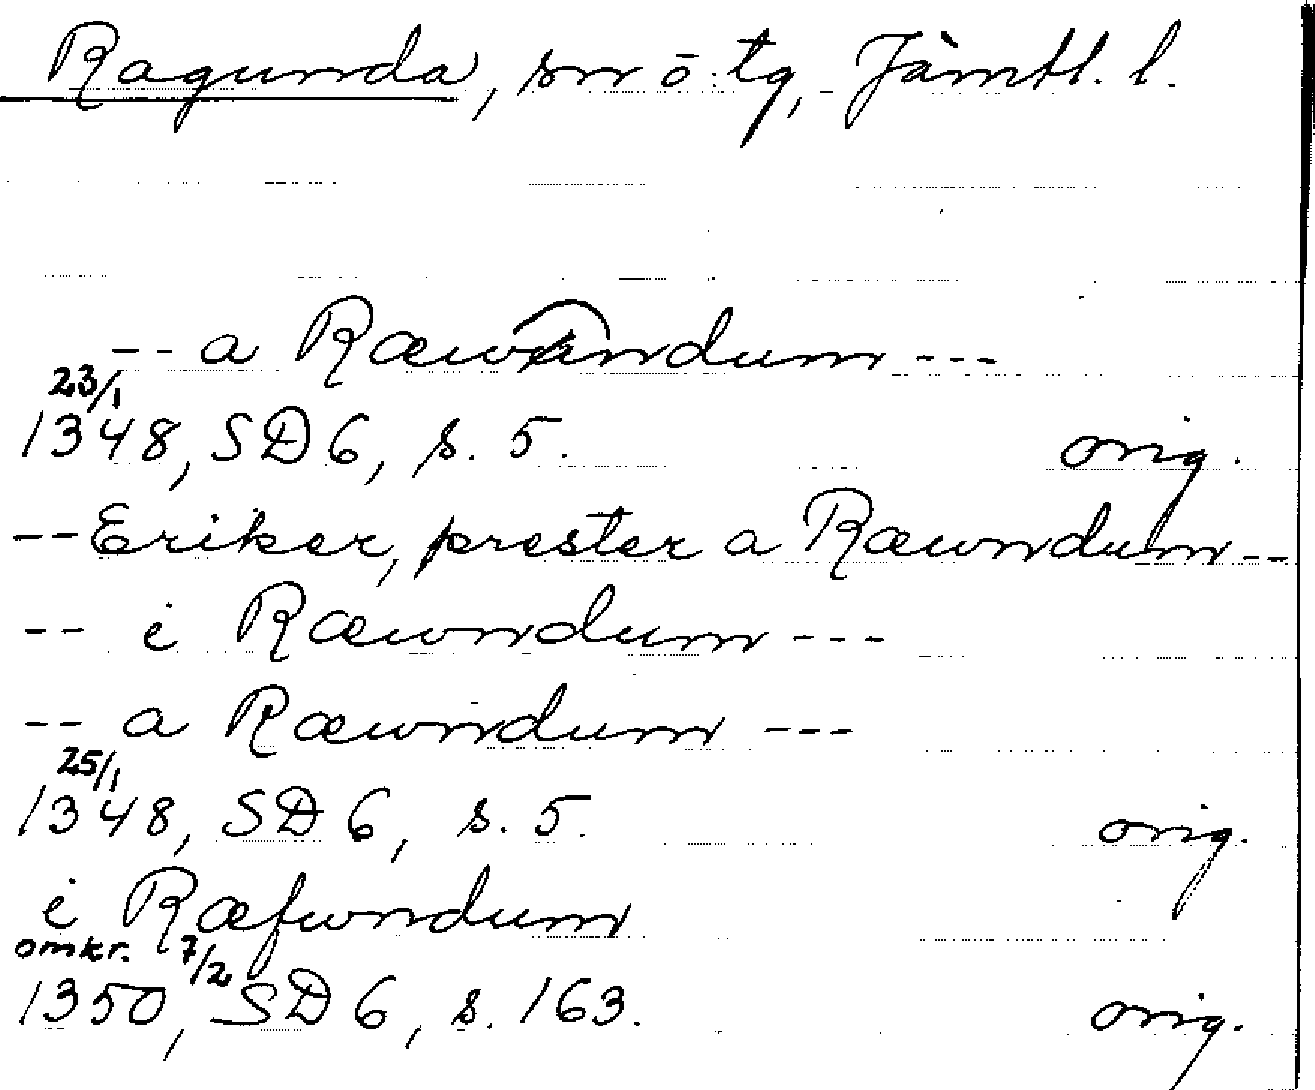 Ragunda, sn o. tg, Jämtl. l.
-- a Ræwændum ---
23/1
1348, SD 6, s. 5. orig.
-- Eriker, prester a Ræwndum --
-- i Ræwndum ---
-- a Ræwndum ---
25/1
1348, SD 6, s. 5. orig.
i Ræfwndum
omkr. 7/2
1350, SD 6, s. 163. orig.